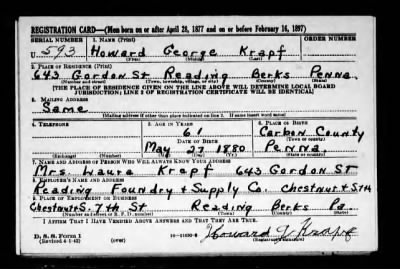 REGISTRATION CARD—(Men born on or after April 28, 1877 and on or before February 16, 1897)
SERIAL NUMBER 1. NAME (Print) ORDER NUMBER
U 593 Howard George Krapf
(First) (Middle) (Last)
2. PLACE OF RESIDENCE (Print)
643 Gordon St Reading Berks Penna.
(Number and street) (Town, township, village, or city) (County) (State)
[THE PLACE OF RESIDENCE GIVEN ON THE LINE ABOVE WILL DETERMINE LOCAL BOARD
JURISDICTION; LINE 2 OF REGISTRATION CERTIFICATE WILL BE IDENTICAL]
3. MAILING ADDRESS
Same
[Mailing address if other than place indicated on line 2. If same insert word same]
4. TELEPHONE 5. AGE IN YEARS 6. PLACE OF BIRTH
61 Carbon County
DATE OF BIRTH (Town or county)
May 27 1880 Penna.
(Exchange) (Number) (Mo.) (Day) (Yr.) (State or country)
7. NAME AND ADDRESS OF PERSON WHO WILL ALWAYS KNOW YOUR ADDRESS
Mrs. Laura Krapf 643 Gordon St
8. EMPLOYER'S NAME AND ADDRESS
Reading Foundry & Supply Co. Chestnut & 7th
9. PLACE OF EMPLOYMENT OR BUSINESS
Chestnut & S. 7th St Reading Berks Pa.
(Number and street or R. F. D. number) (Town) (County) (State)
I AFFIRM THAT I HAVE VERIFIED ABOVE ANSWERS AND THAT THEY ARE TRUE.
D. S. S. Form 1
(Revised 4-1-42) (over) Howard G Krapf
(Registrant's signature)